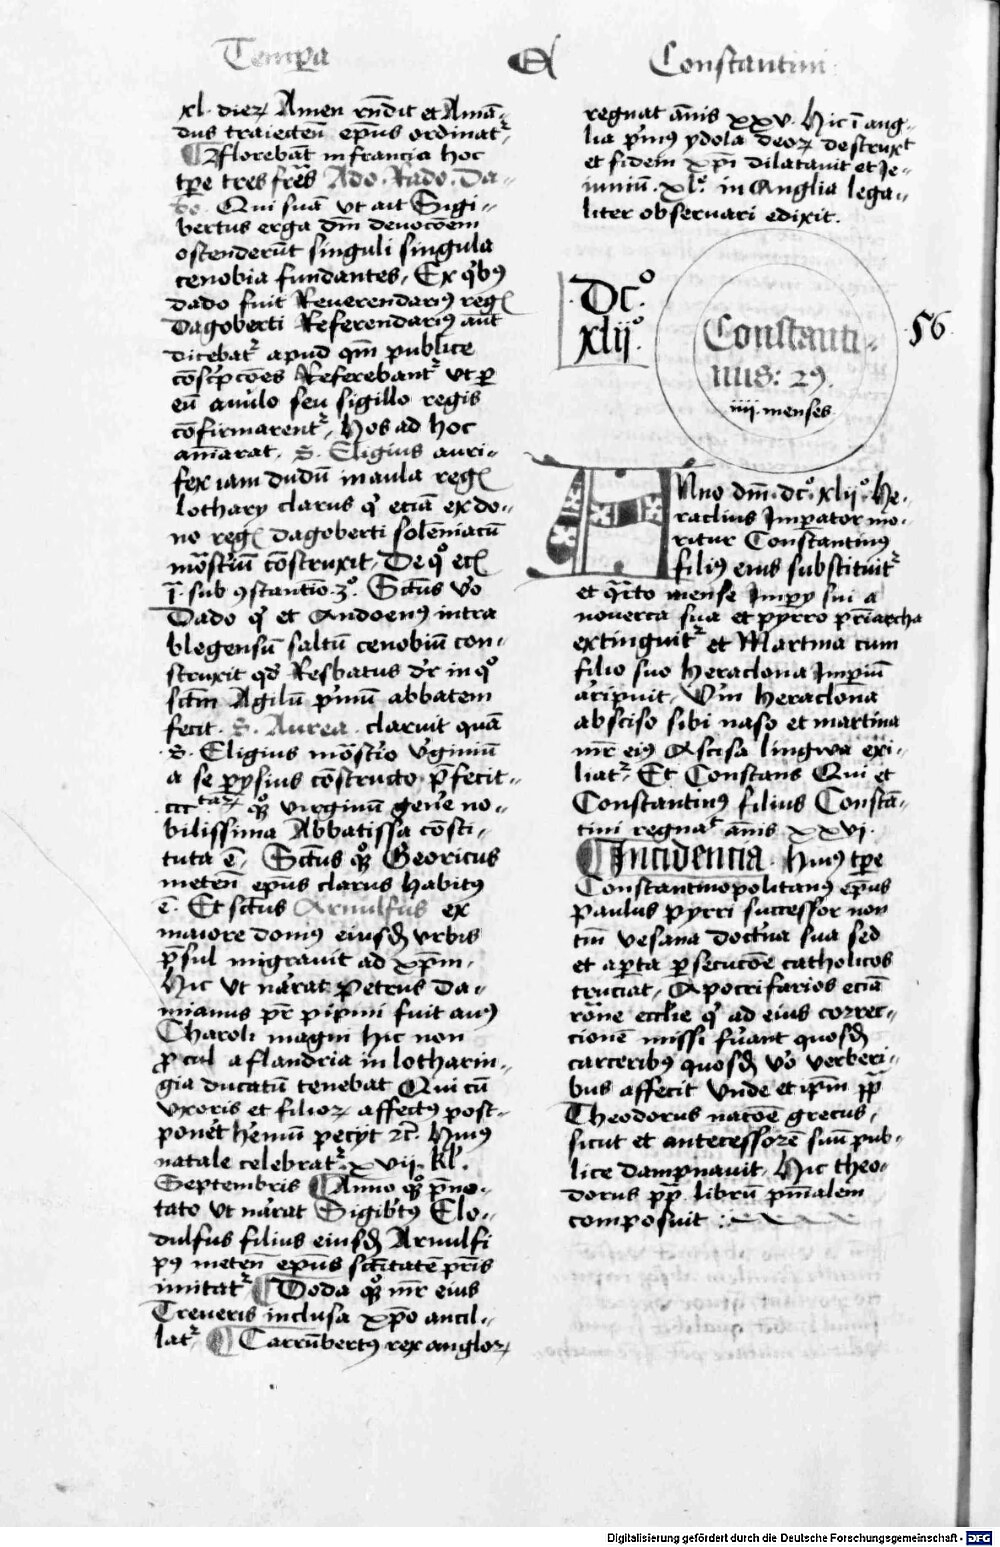 Temp̲a
Constantini
xl. dieꝝ Amen rn̄dit et Amā-
dus traiecteñ ep̄us ordinatr
¶ Florebāt in francia hoc
tp̄e tres fr̄es Ado. Rado. Da-
do. Qui suā vt ait Sigi-
bertus erga dn̄m deuocōem
ostenderūt singuli singula
cenobia fundantes, Ex qͥbꝯ
dado fuit Reuerendariꝯ regꝭ
Dagoberti Referendariꝯ aūt
dicebatr apud qm̄ publice
cōscͥpcōes Referebantr vt ꝑ
eū anulo seu sigillo regis
cōfirmarentr, Hos ad hoc
amārat. S. Eligius auri-
fex iam dudū in aula regꝭ
lothary clarus qͥ eciā ex do-
no regꝭ dagoberti solēniacū
mōst'iū cōstruxit, De qͦ etꝭ
ī. sub ꝯstantīo .3o. Sctūs v'o
Dado qͥ et Andoenꝯ intra
blegensū saltū cenobiū con-
struxit qd' Resbatus dr in qͦ
sctm̄ Agilū pͥmū abbatem
fecit. S. Aurea. claruit quā
.S. Eligius mōst'io v'giniū
a se ꝑysius cōstructo p̄fecit-
ccctaꝝ qͦꝫ virginū gen'e no-
bilissima Abbatissa cōsti-
tuta ē. Sctūs qͦꝫ Georicus
meteñ epūs clarus habitꝯ
ē. Et sctūs Arnulfus ex
maiore domꝯ eiusdꝭ vrbis
p̄sul migrauit ad xp̄m.
Hic vt nārat Petrus da-
mianus pr̄ pipini fuit auꝯ
Charoli magni hic non
ꝓcul a flandria in lotharin-
gia ducatū tenebat Qui cū
vxoris et filioꝝ affectꝯ post-
ponet h'emū pecijt ꝛc̄. Huiꝯ
natale celebratr. xvij. kl'.
Septembris ¶ Anno qͦꝫ p̄no-
tato vt nārat Sigib'tꝯ Clo-
dulfus filius eiusdꝭ Arnulfi
pꝯ meteñ ep̄us sctītatē pr̄is
imitatr ¶ Doda qͦꝫ mr̄ eius
Treueris inclusa xp̄o ancil-
latr ¶ Carrūbertꝯ rex angloꝝ
regnat ānis xxv. Hic ī ang-
lia pͥmꝯ ydola deoꝝ destruxt
et fidem xp̄i dilatauit et Je-
iuniū. xlo. in Anglia lega-
liter obseruari edixit.
.Dc.o
xlijo
Constanti-
nus: 29.
iiij. menses
.56.
ANno dm̄. dco. xlijo. He-
raclius Imperator mo-
ritur Constantinꝯ
filiꝯ eius substituitr
et qͣrto mense Impery sui a
nouerca sua et pyrro p̄riarcha
extinguitr et Martina cum
filio suo heraclona Impiū
aripuit, V'm heraclona
absciso sibi naso et martina
mr̄ eiꝯ Ascisa lingwa exi-
liatr, Et Constans Qui et
Constantinꝯ filius Constā-
tini regnat ānis xxvj.
¶ Incidencia. Huiꝯ tp̄e
Constantinopolitanꝯ ep̄us
Paulus pyrri successor non
tm̄ vesana doct'na sua sed
et aꝑta ꝑsecucōe catholicos
truciāt, Apocrifarios eciā
rōne eccl'ie qͥ ad eius correc-
cionē missi fu'ant quosdꝭ
carceribꝯ quosdꝭ v'o verberi-
bus affecit Vnde et ip̄m pp̄
Theodorus nacōe grecus.
sicut et antecessorē suū pub-
lice dampnauit, Hic theo-
dorus pp̄ librū pn̄ialem
composuit
Digitalisierung gefördert durch die Deutsche Forschungsgemeinschaft - DFG